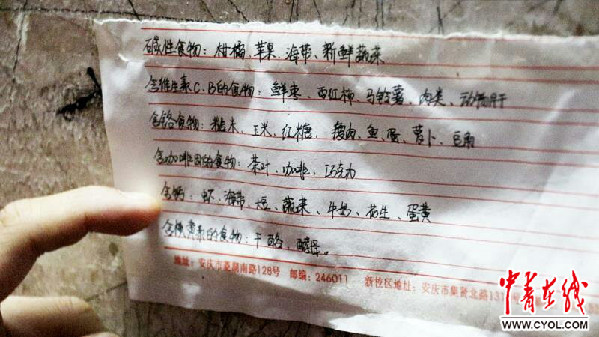 碱性食物：柑橘、苹果、海带、新鲜蔬菜
含维生素C、B的食物：鲜枣、西红柿、马铃薯、肉类、动物肝
含铬食物：糙米、玉米、红糖、瘦肉、鱼、蛋、萝卜、豆角
含咖啡因的食物：茶叶、咖啡、巧克力
含钙：虾、海带、豆、蔬菜、牛奶、花生、蛋黄
含微黄素的食物：干酪、
地址：安庆市菱湖南路128号 邮编：246011 新校区地址：安庆市集贤北路13
中青在线
WWW.CYOL.COM